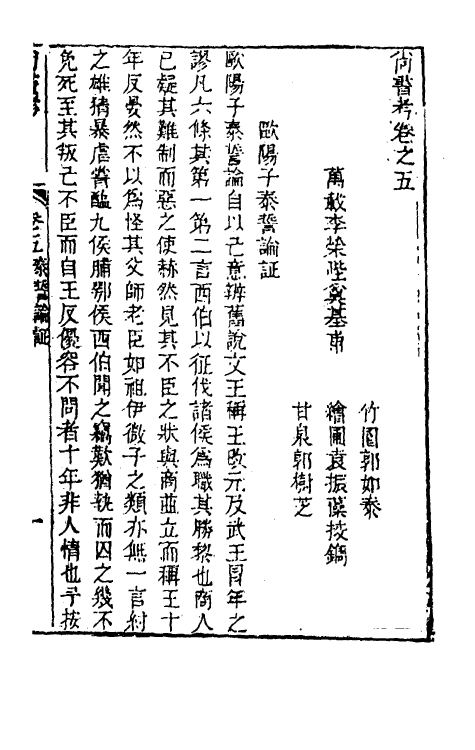 尚書考卷之五
萬載李榮陛奠基甫
竹園郭如泰
繪圖袁振藻挍鐫
甘泉郭樹芝
歐陽子泰誓論証
歐陽子泰誓論自以己意辨舊說文王稱王改元及武王冒年之
謬凡六條其第一第二言西伯以征伐諸侯爲職其勝黎也商人
已疑其難制而惡之使赫然見其不臣之狀與商並立而稱王十
年反晏然不以爲怪其父師老臣如祖伊微子之類亦無一言紂
之雄猜暴虐嘗醢九侯脯鄂侯西伯聞之竊歎猶執而囚之幾不
免死至其叛己不臣而自王反優容不問者十年非人情也予按
卷五泰誓論証
一